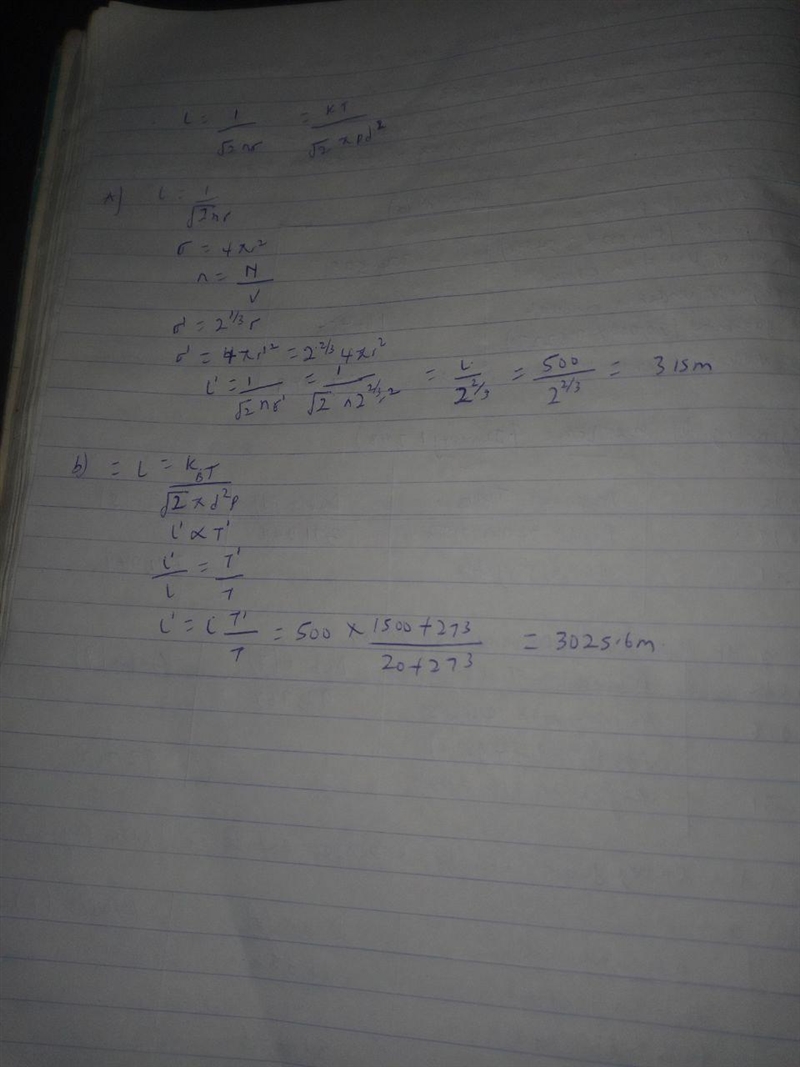 L = 1/√2 nσ = KT/√2 π pd²
a) L = 1/√2 nσ
σ = 4πr²
n = N/V
r' = 2^1/3 r
σ' = 4πr'² = 2^2/3 4πr²
L' = 1/√2 nσ' = 1/√2 n2^2/3 r² = L/2^2/3 = 500/2^2/3 = 315m
b) = L = K_BT/√2 π d²p
L' ∝ T'
L'/L = T'/T
L' = L T'/T = 500 × 1500+273/20+273 = 3025.6m